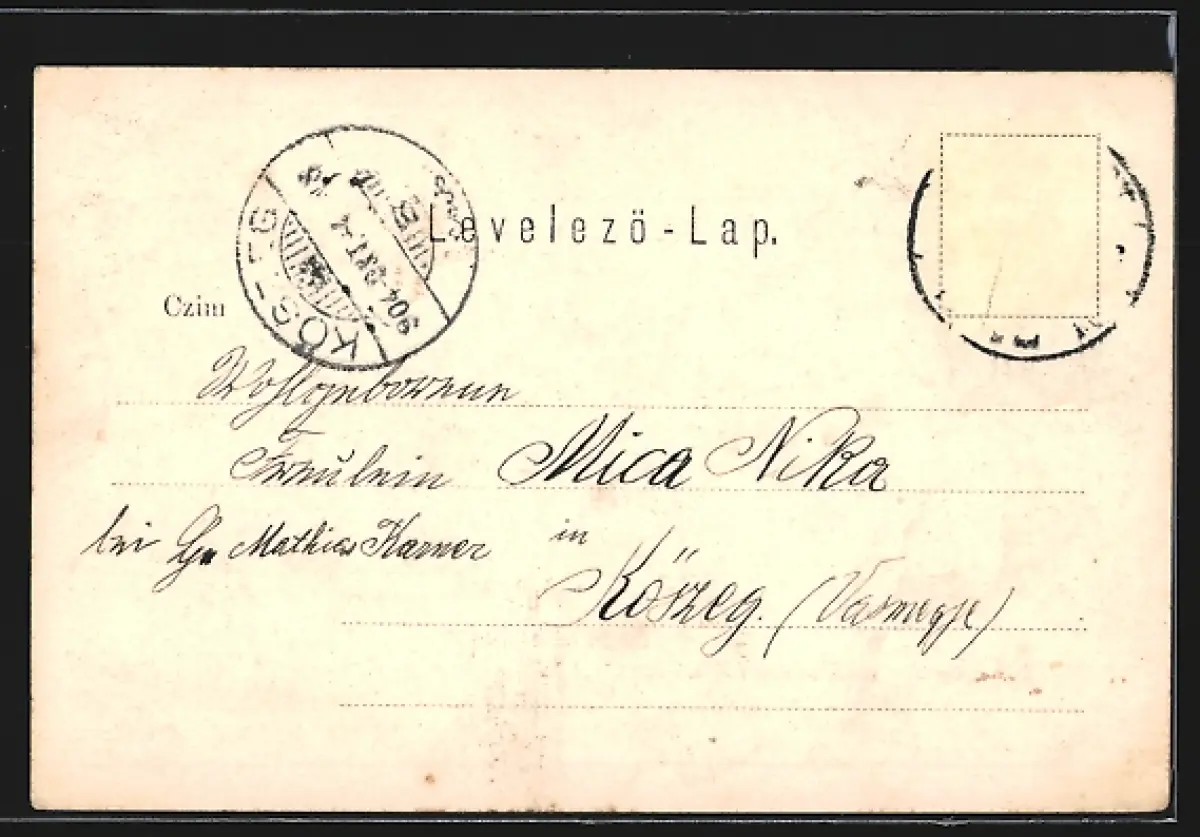 Levelező-Lap.
KŐSZEG
904 B
Czim
Wohlgeborenen
Fräulein Mica Nika
bei Mathias Karner in
Köszeg. (Vasmegye)